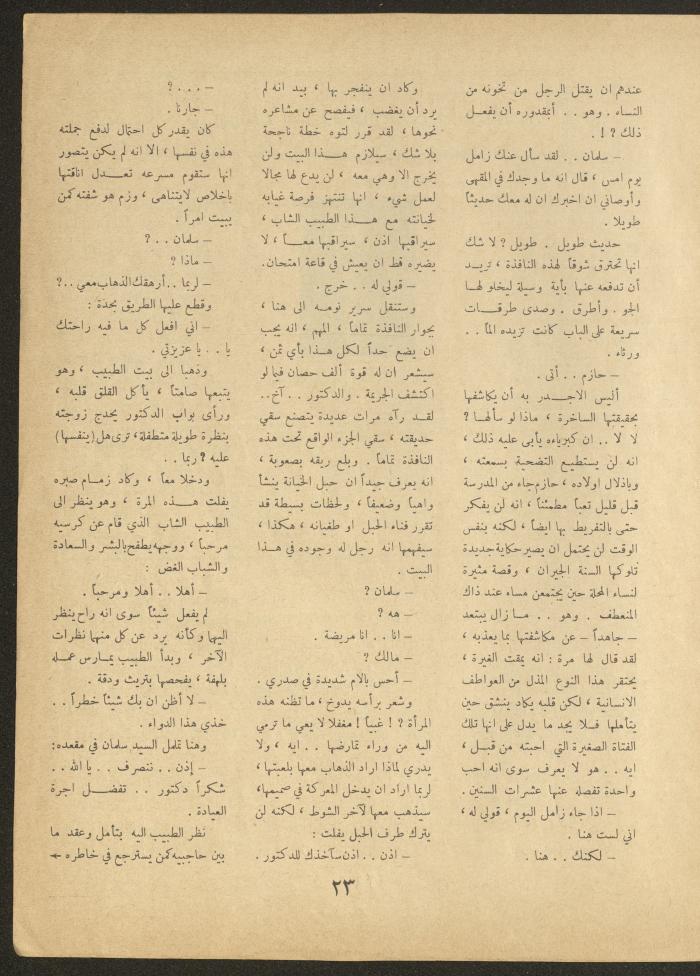 عندهم ان يقتل الرجل من تخونه من
النساء . وهو . . أبمقدوره أن يفعـل
ذلك ? ! .
– سلمان . . لقد سأل عنك زامل
يوم امس ، قال انه ما وجدك في المقهى
وأوصاني ان اخبرك ان له معك حديثاً
طويلا .
حديث طويل . طويل ? لا شك
انها تحترق شوقاً لهذه النافذة ، تريـد
أن تدفعه عنها بأية وسيلة ليخلو لهـا
الجو . وأطرق . وصدى طرقـات
سريعة على الباب كانت تزيده الماً . .
ورثاء .
– حازم . . أتى .
أليس الاجـدر به أن يكاشفها
بحقيقتها الساخرة ، ماذا لو سألهـا ?
لا لا . . ان كبرياءه يأبى عليه ذلك ،
انه لن يستطيع التضحية بسمعته ،
وباذلال اولاده ، حازم جاء من المدرسة
قبل قليل تعباً مطمئناً ، انه لن يفكر
حتى بالتفريط بها ايضاً ، لكنه بنفس
الوقت لن يحتمل ان يصير حكاية جديدة
تلوكها السنة الجيران ، وقصة مثيرة
لنساء المحلة حين يجتمعن مساء عند ذاك
المنعطف . وهو . . ما زال يبتعد
– جاهداً – عن مكاشفتها بما يعذبه ،
لقد قال لها مرة : انه يمقت الغيرة ،
يحتقر هذا النوع المذل من العواطف
الانسانية ، لكن قلبه يكاد ينشق حين
يتأملها فـلا يجد ما يدل على انها تلك
الفتاة الصغيرة التي احبته من قبـل ،
ايه . . هو لا يعرف سوى انه احب
واحدة تفصله عنها عشرات السنين .
– اذا جاء زامل اليوم ، قولي له ،
اني لست هنا .
– لكنك . . هنا .
وكاد ان ينفجر بها ، بيد انه لم
يرد أن يغضب ، فيفصح عن مشاعره
نحوها ، لقد قرر لتوه خطة ناجحة
بلا شك ، سيلازم هـذا البيت ولن
يخرج الا وهي معه ، لن يدع لها مجالا
لعمل شيء ، انها تنتهز فرصة غيابه
لخيانته مع هـذا الطبيب الشاب ،
سيراقبها اذن ، سيراقبها معـاً ، لا
يضيره قط ان يعيش في قاعة امتحان .
– قولي له . . خرج .
وستنقل سرير نومـه الى هنا ،
بجوار النافذة تماماً ، المهم ، انه يجب
ان يضع حداً لكل هـذا بأي ثمن ،
سيشعر ان له قوة ألف حصان فيما لو
اكتشف الجريمة . والدكتور . . آخ . .
لقـد رآه مرات عديدة يتصنع سقي
حديقته ، سقي الجزء الواقع تحت هذه
النافذة تماماً . وبلع ريقه بصعوبة ،
انه يعرف جيداً ان حبل الخيانة ينشأ
واهياً وضعيفاً ، ولحظات بسيطة قد
تقرر فناء الحبل او طغيانه ، هكذا ،
سيفهمها انه رجل له وجوده في هـذا
البيت .
– سلمان ?
– هه ?
– انا . . انا مريضة .
– مالك ?
– أحس بالام شديدة في صدري .
وشعر برأسه يدوخ ، ما تظنه هذه
المرأة ? ! غبياً ! مغفلا لا يعي ما ترمي
اليه من وراء تمارضها . . ايه ، ولا
يدري لماذا اراد الذهاب معها بلعبتها ،
لربما اراد ان يدخل المعركة في صميمها ،
سيذهب معها لآخر الشوط ، لكنه لن
يترك طرف الحبل يفلت :
– اذن . . اذن سآخذك للدكتور .
– . . . ?
– جارنا .
كان يقدر كل احتمال لدفع جملته
هذه في نفسها ، الا انه لم يكن يتصور
انها ستقوم مسرعه تعـدل اناقتها
باخلاص لايتناهى ، وزم هو شفته كمن
يبيت امراً .
– سلمان . . ?
– ماذا ?
– لربما . . أرهقك الذهاب معي . . ?
وقطع عليها الطريق بحدة :
– اني افعل كل ما فيه راحتك
يا . . يا عزيزتي .
وذهبا الى بيت الطبيب ، وهو
يتبعها صامتاً ، يأكل القلق قلبه ،
ورأى بواب الدكتور يحدج زوجته
بنظرة طويلة متطفلة ، ترى هل (ينفسها)
عليه ? ربما . .
ودخلا معاً ، وكاد زمـام صبره
يفلت هـذه المرة ، وهو ينظر الى
الطبيب الشاب الذي قام عن كرسيه
مرحباً ، ووجهه يطفح بالبشر والسعادة
والشباب الغض :
– أهلا . . أهلا ومرحباً .
لم يفعل شيئاً سوى انه راح ينظر
اليهما وكأنه يرد عن كل منهما نظرات
الآخر ، وبدأ الطبيب يمـارس عمـله
بلهفة ، يفحصها بتريث ودقة .
– لا أظن ان بك شيئاً خطراً . .
خذي هذا الدواء .
وهنا تململ السيد سلمان في مقعده :
– إذن . . ننصرف . . يا الله . .
شكراً دكتور . . تفضـل اجرة
العيادة .
نظر الطبيب اليه يتأمل وعقد ما
بين حاجبيه كمن يسترجع في خاطره ←
٢٣